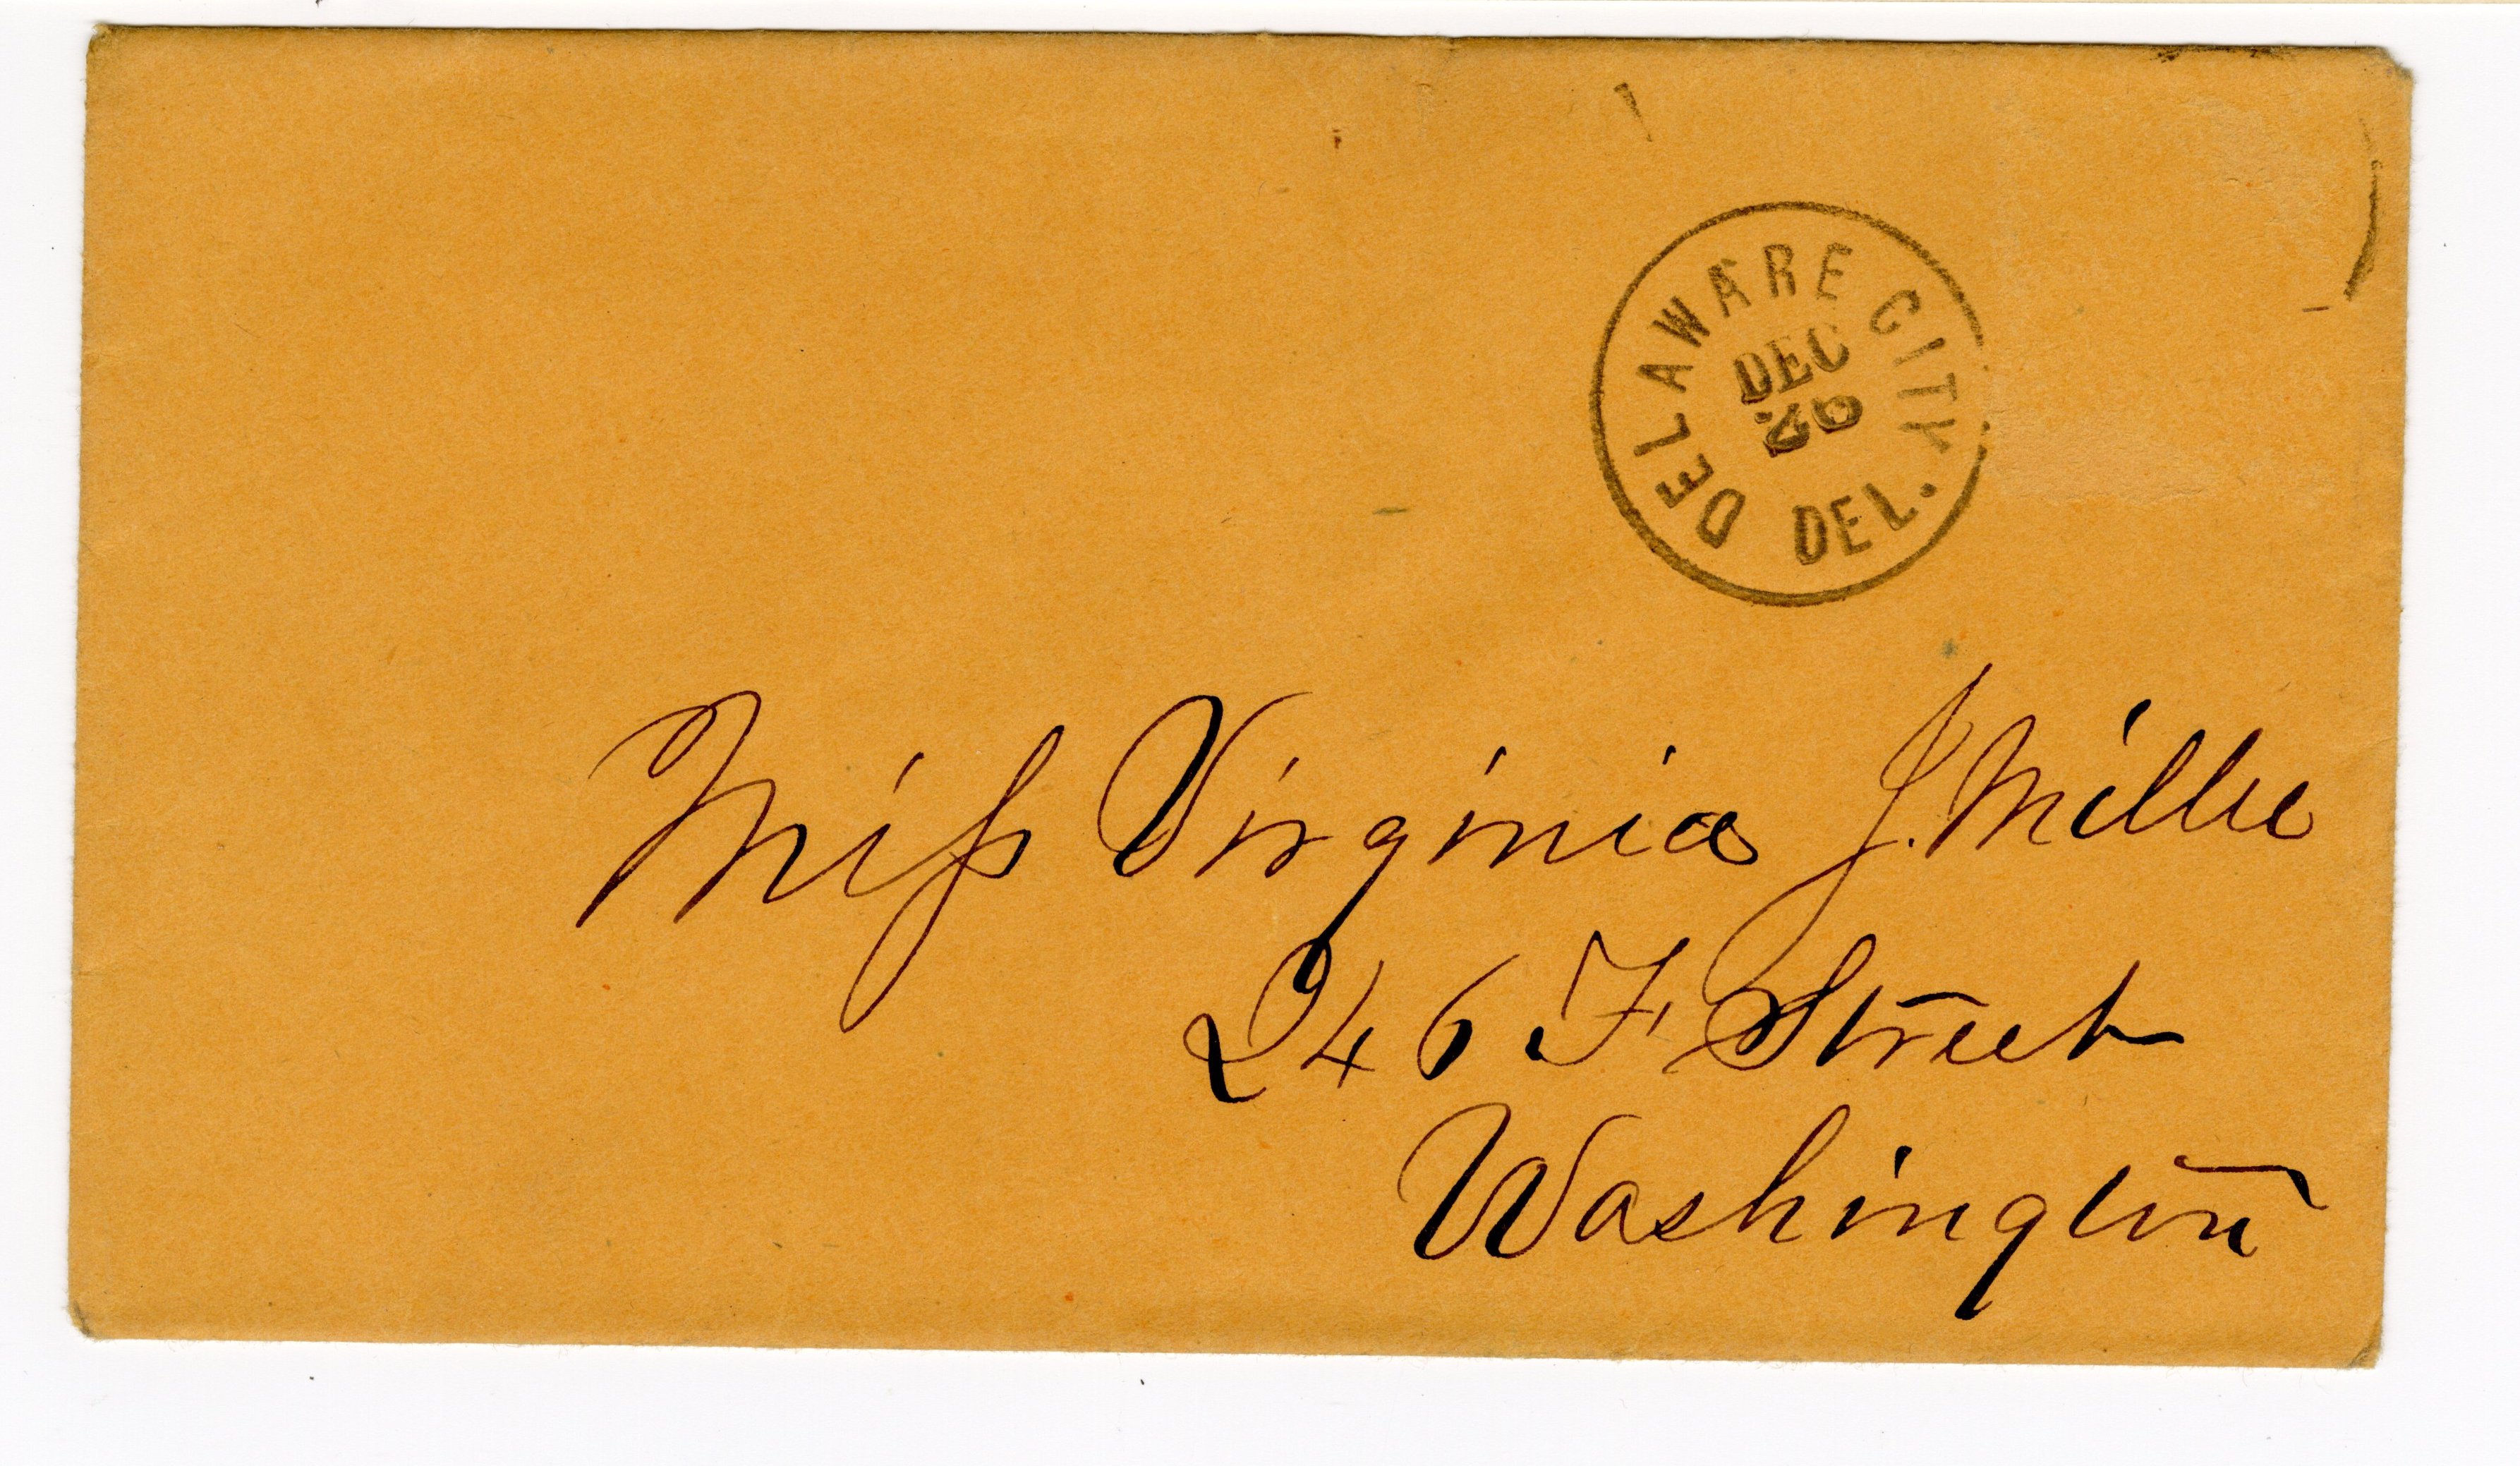 DELAWARE CITY
DEC
DEL.
Miss Virginia J. Miller
246 F Street
Washington